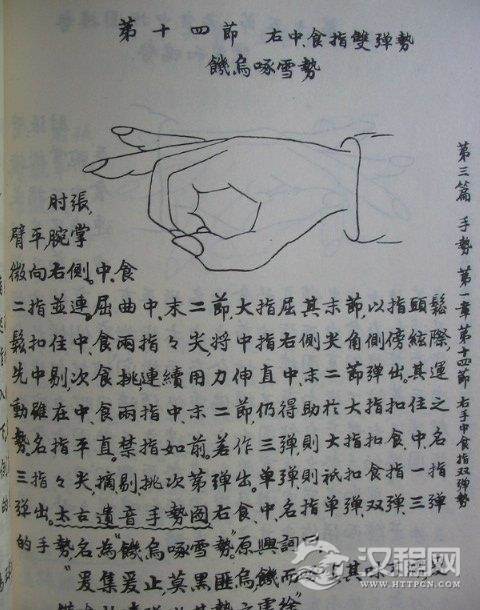 第十四節 右中、食指雙弹勢
饑烏啄雪勢
肘張,
臂平腕掌
微向右側。中、食
二指並連。屈曲中、末二節,大指屈其末節,以指頭鬆
鬆扣住中、食兩指々尖,將中指右側尖角側傍絃際
先中剔,次食挑,連續用力伸直中、末二節弹出。其運
動雖在中、食兩指中、末二節,仍得助於大指扣住之
勢。名指平直。禁指如前。若作三弹,則大指扣食、中、名
三指々尖,摘剔挑次第弹出。单弹,則祇扣食指一指
弹出。太古遺音手勢図右食、中、名指单弹双弹三弹
的手勢名為"饑烏啄雪勢"。原興詞曰
"爰集爰止,莫黑匪烏饑而
第三篇 手勢 第一章第十四節 右手中食指双弹勢
汉程网
HTTPCN.COM